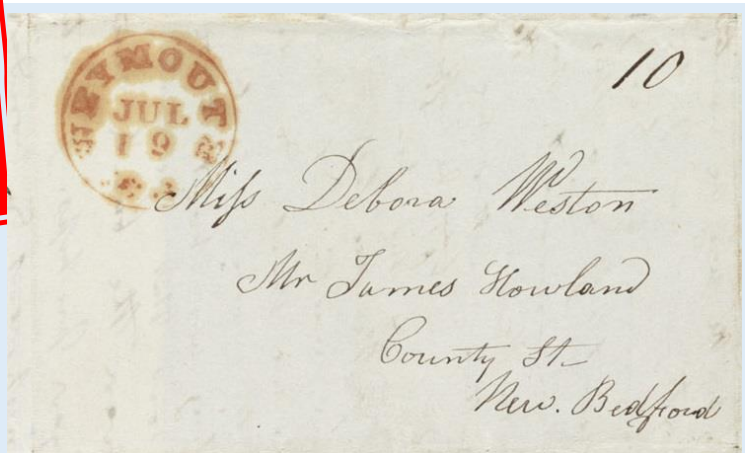 WEYMOUTH
JUL
19
10
Miss Debora Weston
Mr James Howland
County St.
New. Bedford